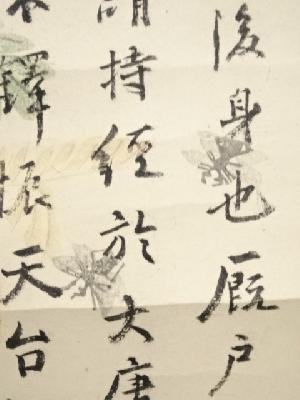 後身也厩戸
持經於大唐
鐸振天台